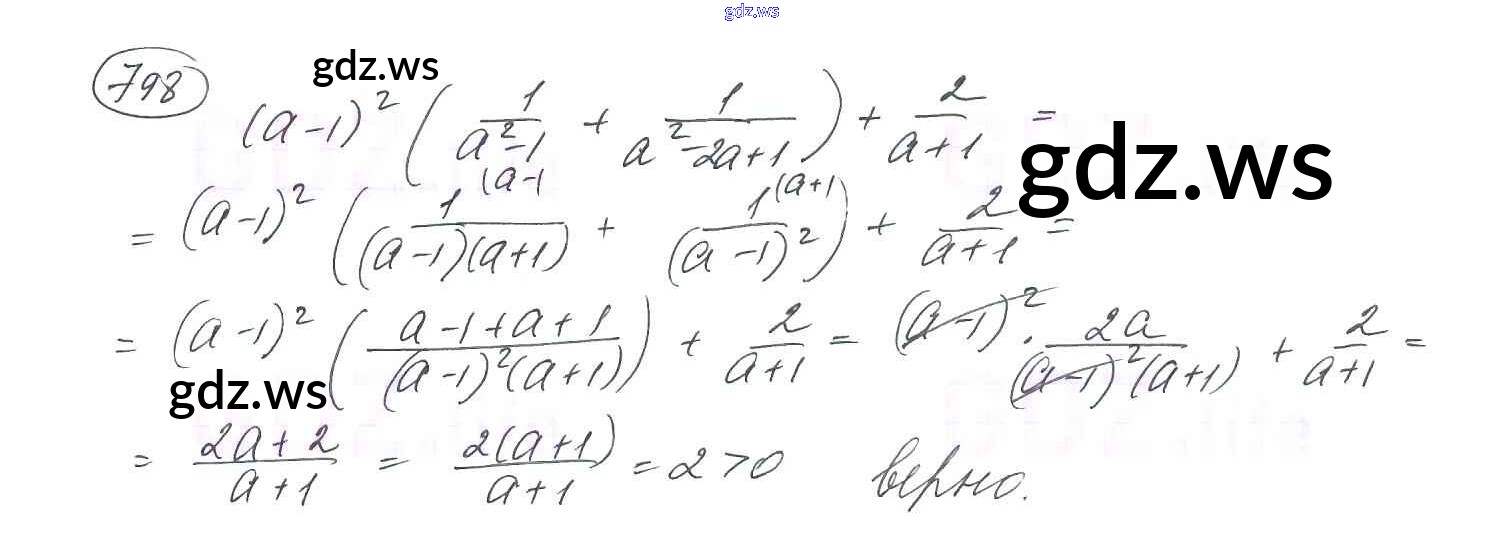 gdz.ws
798 gdz.ws
(a-1)² ( 1/(a²-1) + 1/(a²-2a+1) ) + 2/(a+1) =
gdz.ws
= (a-1)² ( 1^(a-1/((a-1)(a+1)) + 1^(a+1/(a-1)² ) + 2/(a+1) =
= (a-1)² ( (a-1+a+1)/((a-1)²(a+1)) ) + 2/(a+1) = (a-1)² · 2a/((a-1)²(a+1)) + 2/(a+1) =
gdz.ws
= (2a+2)/(a+1) = 2(a+1)/(a+1) = 2>0 верно.